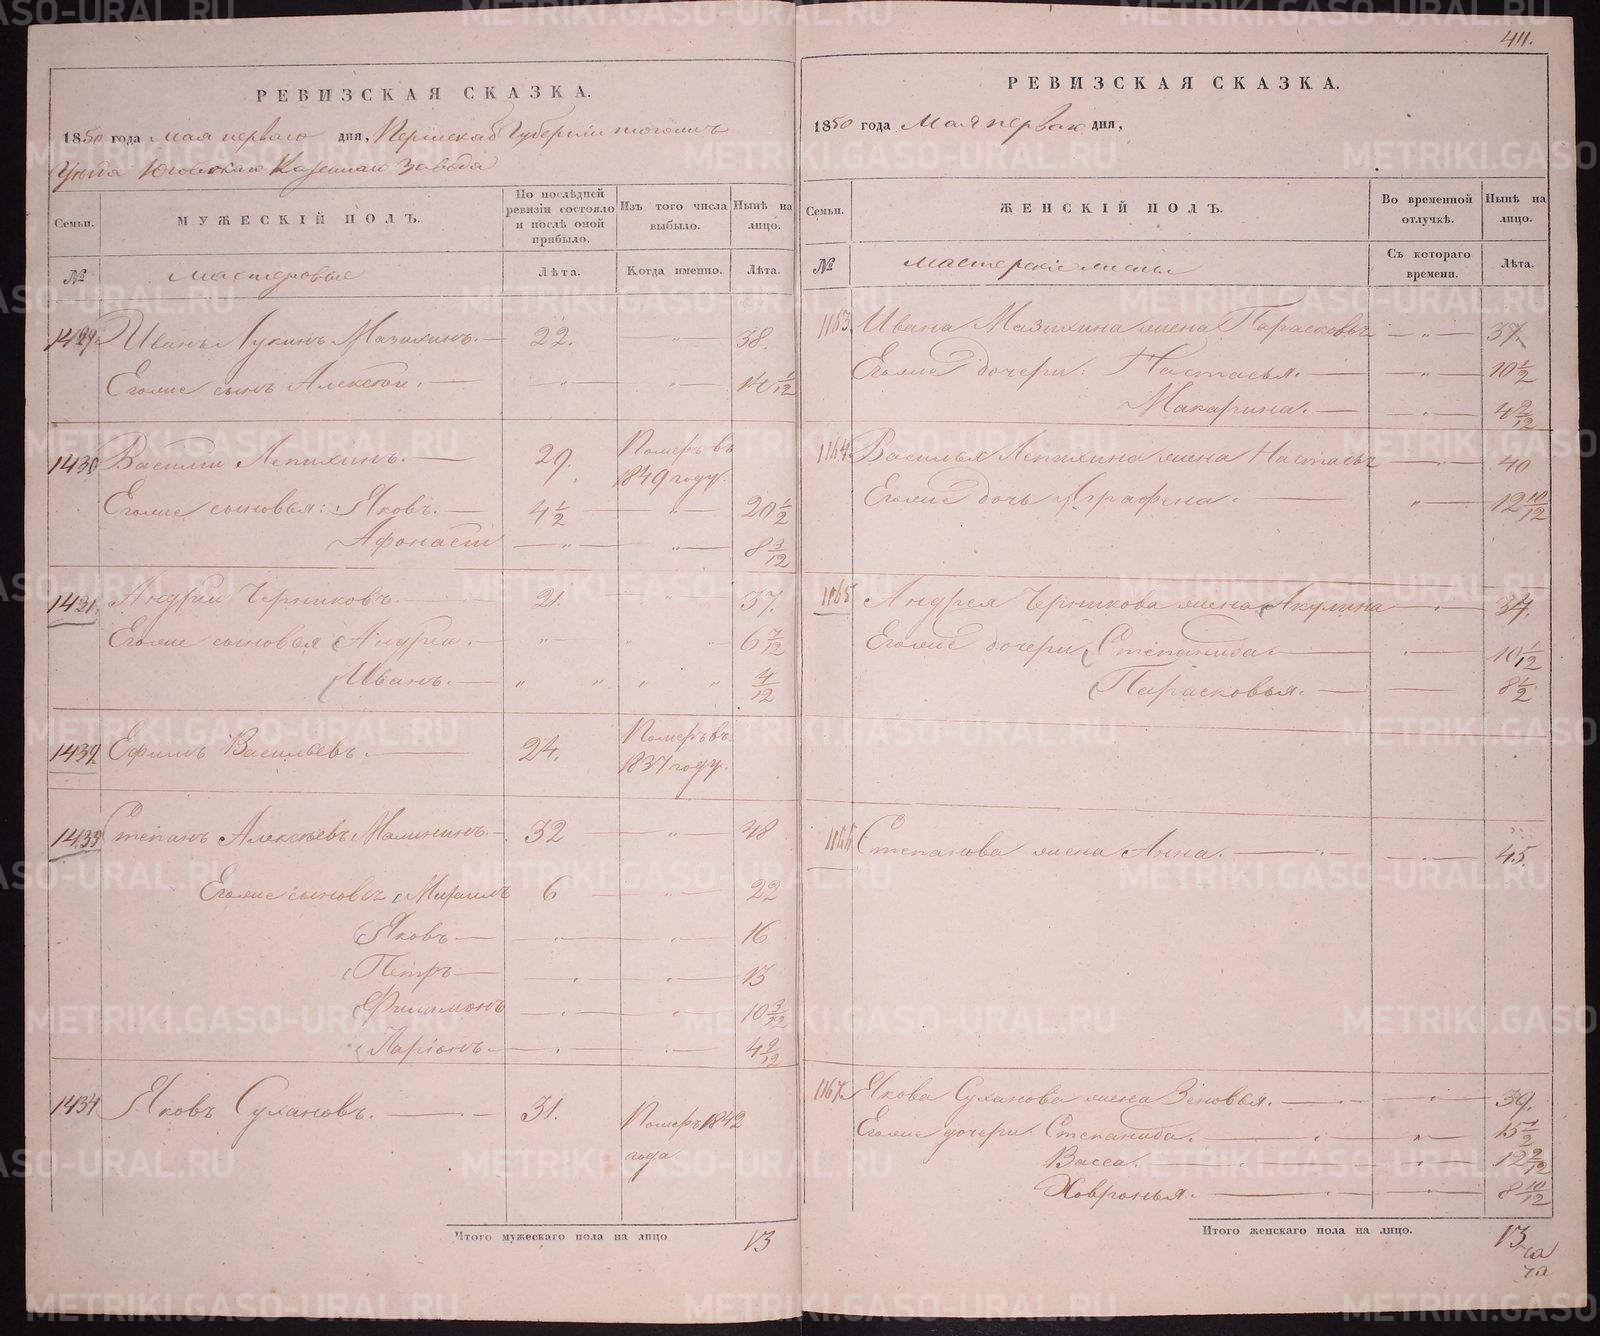 411.
РЕВИЗСКАЯ СКАЗКА.
1850 года мая перваго дня, Пермской Губернiи тогожъ
Уѣзда Юговскаго Казеннаго Завода
Семьи. МУЖЕСКIЙ ПОЛЪ. По послѣдней ревизiи состояло и послѣ оной прибыло. Изъ того числа выбыло. Нынѣ на лицо.
№ Мастеровые Лѣта. Когда именно. Лѣта.
1429. Иванъ Лукинъ Мазихинъ. 22. — " — 38.
Его же сынъ Алексѣй. — " — — " — 14 1/12
1430 Василiй Лепихинъ. 29. Померъ въ 1849 году.
Его же сыновья: Яковъ. 4 1/2 — " — 20 1/2
Афонасiй — " — — " — 8 3/12
1431. Андрей Черниковъ. 21. — " — 37.
Его же сыновья Андрей. — " — 6 7/12
Иванъ. — " " " " 4/12
1432 Ефимъ Васильевъ. 24. Померъ въ 1837 году.
1433 Степанъ Алексѣевъ Малининъ. 32 — " — 48
Его же сыновья Михаилъ 6 — " — 22
Яковъ — " — — " — 16
Петръ — " — — " — 13
Филимонъ — " — — " — 10 3/12
Ларiонъ. — " — — " — 4 9/12
1434 Яковъ Сухановъ. 31. Померъ 1842 года
Итого мужескаго пола на лицо 13
РЕВИЗСКАЯ СКАЗКА.
1850 года Мая перваго дня,
Семьи. ЖЕНСКIЙ ПОЛЪ. Во временной отлучкѣ. Нынѣ на лицо.
№ Мастерскiе жены Съ котораго времени. Лѣта.
1163. Ивана Мазихина жена Парасковья — " — 37.
Его же дочери: Настасья. — " — 10 1/2
Макарина. — " — 4 2/12
1164 Василья Лепихина жена Настасья — " — 40
Его же дочь Аграфена. — " — 12 10/12
1165 Андрея Черникова жена Акулина — " — 34.
Его же дочери Степанида — " — 10 1/12
Парасковья. — 8 1/2
1166 Степанова жена Анна. — " — 45.
1167. Якова Суханова жена Зеновья. — " — 39.
Его же дочери Степанида. — " — 15 1/2
Васса. — " — 12 2/12
Ховронья. — " — 8 10/12
Итого женскаго пола на лицо. 13
METRIKI.GASO-URAL.RU